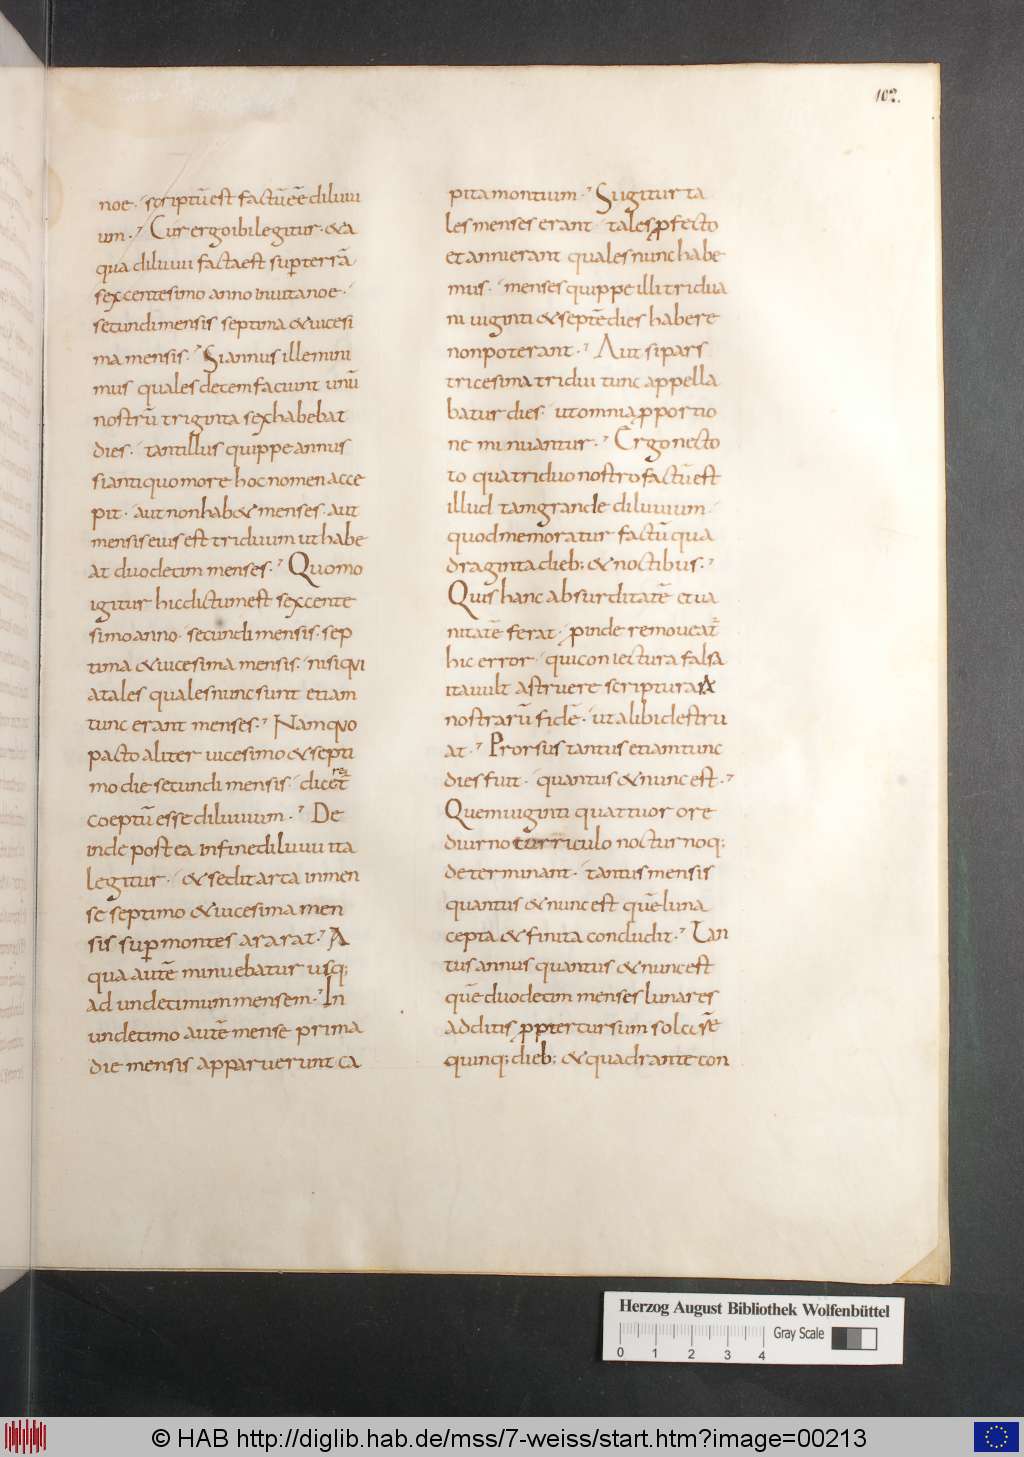 102.
noe· scriptū est factū eē diluui
um· Cur ergo ibi legitur· & a
qua diluuii facta est sup terrā
sexcentesimo anno in uita noe·
secundi mensis septima & uicesi
ma mensis· Si annus ille mini
mus quales decem faciunt unū
nostrū triginta sex habebat
dies· tantillus quippe annus
si antiquo more hoc nomen acce
pit· aut non hab& menses· aut
mensis eius est triduum ut habe
at duodecim menses· Quomo
igitur hic dictum est sexcente
simo anno· secundi mensis· sep
tima & uicesima mensis· nisi qui
a tales quales nunc sunt etiam
tunc erant menses· Nam quo
pacto aliter uicesimo & septi
mo die secundi mensis· dicer&
coeptū esse diluuium· De
inde postea in fine diluuii ita
legitur· & sedit arca in men
se septimo & uicesima men
sis sup montes ararat· A
qua autē minuebatur usq;
ad undecimum mensem· In
undecimo autē mense prima
die mensis apparuerunt ca
pita montium· Si igitur ta
les menses erant· tales pfecto
et anni erant quales nunc habe
mus· menses quippe illi tridua
ni uiginti & septē dies habere
non poterant· Aut si pars
tricesima tridui tunc appella
batur dies· ut omnia pportio
ne minuantur· Ergo nec to
to quatriduo nostro factū est
illud tam grande diluuium·
quod memoratur factū qua
draginta dieb; & noctibus·
Quis hanc absurditatē et ua
nitatē ferat· pinde remoueat
hic error· qui coniectura falsa
ita uult astruere scripturarA
nostrarū fidē· ut alibi destru
at· Prorsus tantus etiam tunc
dies fuit· quantus & nunc est·
Quem uiginti quattuor ore
diurno curriculo nocturnoq;
determinant· tantus mensis
quantus & nunc est quē luna
cepta & finita concludit· Tan
tus annus quantus & nunc est
quē duodecim menses lunares
additis ppter cursum solis
quinq; dieb; & quadrante con
Herzog August Bibliothek Wolfenbüttel
Gray Scale
0 1 2 3 4
© HAB http://diglib.hab.de/mss/7-weiss/start.htm?image=00213